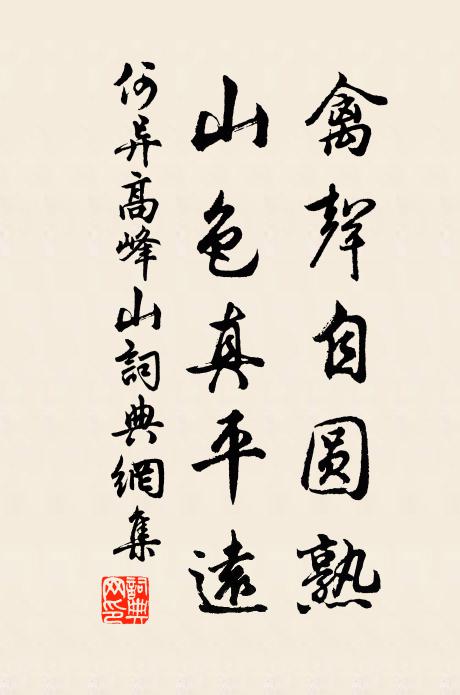 禽聲自圆熟
山色真平遠
何异高峰山詞典網集
詞典網印